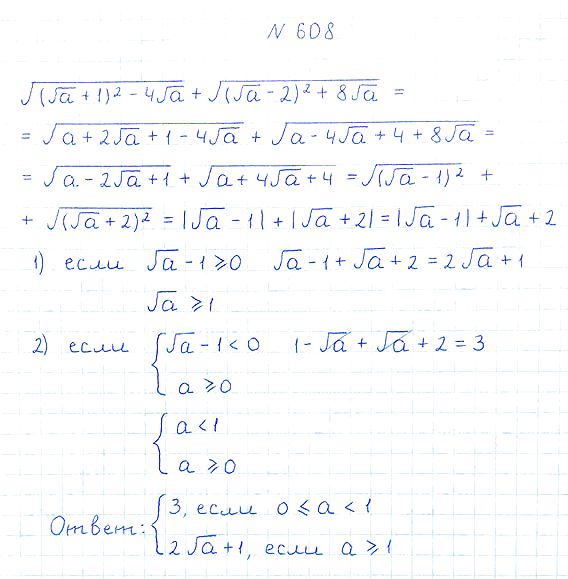 N 608
√((√a + 1)² - 4√a) + √((√a - 2)² + 8√a) =
= √(a + 2√a + 1 - 4√a) + √(a - 4√a + 4 + 8√a) =
= √(a. - 2√a + 1) + √(a + 4√a + 4) = √((√a - 1)²) +
+ √((√a + 2)²) = |√a - 1| + |√a + 2| = |√a - 1| + √a + 2
1) если √a - 1 ⩾ 0 √a - 1 + √a + 2 = 2√a + 1
√a ⩾ 1
2) если { √a - 1 < 0 1 - √a + √a + 2 = 3
a ⩾ 0
{ a < 1
a ⩾ 0
Ответ: { 3, если 0 ⩽ a < 1
2√a + 1, если a ⩾ 1